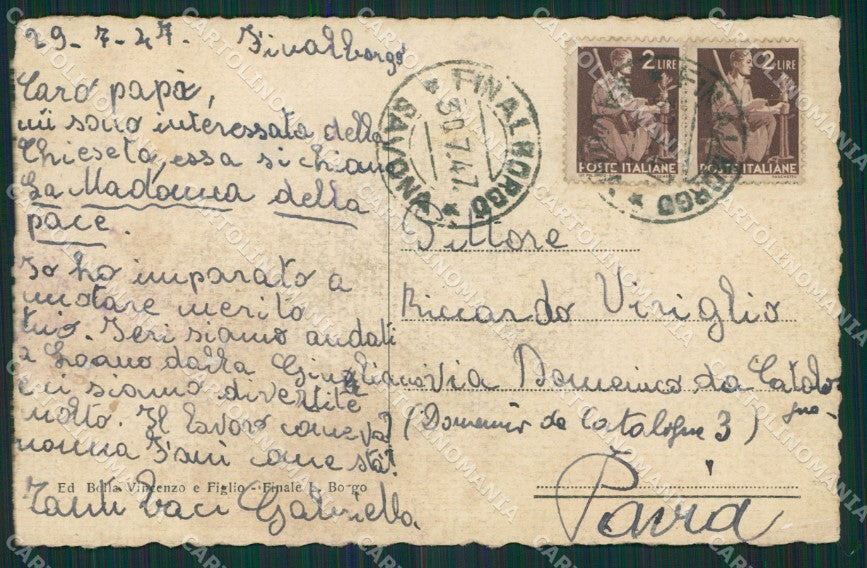 29-7-47. Finalborgo
Caro papà,
mi sono interessata della
Chieseta, essa si chiama
La Madonna della
pace.
Io ho imparato a
nuotare merito
tuo. Ieri siamo andati
a Loano dalla Giuliana
e ci siamo divertite
molto. Il lavoro come va?
nonna Fanì come sta?
Ed Bolla Vincenzo e Figlio - Finale L. Borgo
Tanti baci Gabriella.
2 LIRE
POSTE ITALIANE
2 LIRE
POSTE ITALIANE
FINALBORGO
30.7.47.
SAVONA
Pittore
Riccardo Viriglio
via Domenico da Catalo-
gna-
(Domenico da Catalogna 3)
Pavia
CARTOLINOMANIA